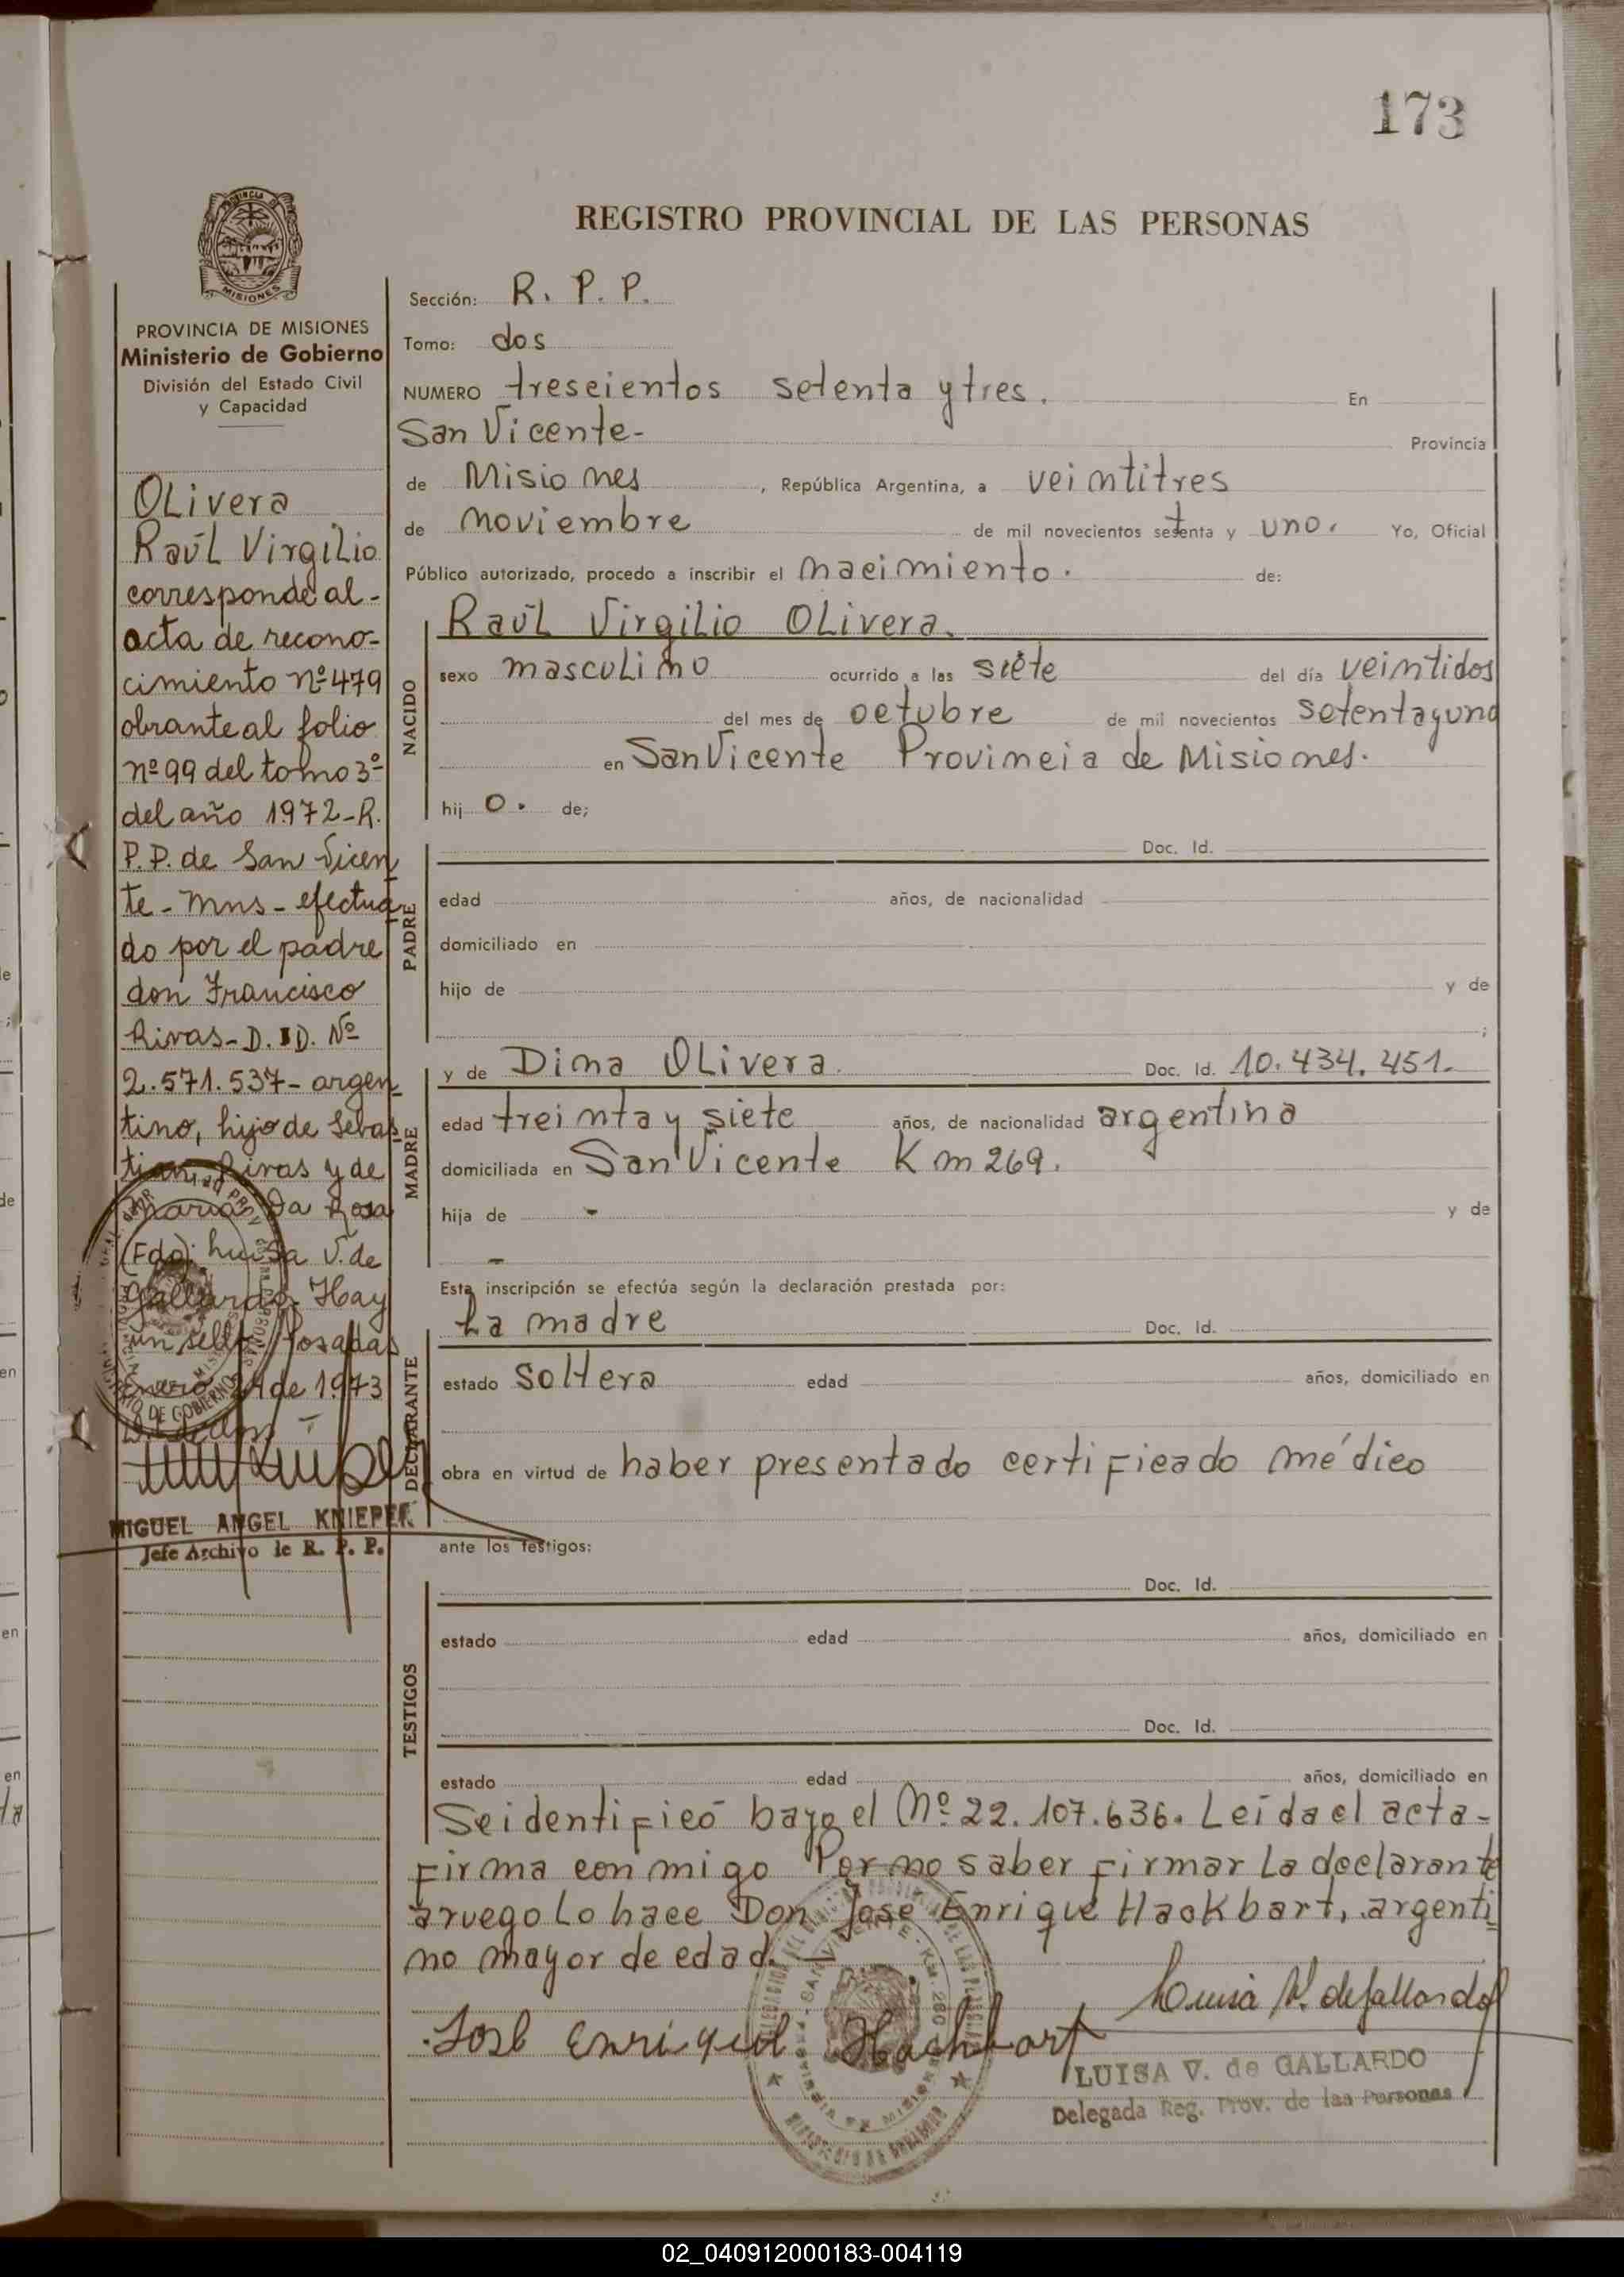 173
REGISTRO PROVINCIAL DE LAS PERSONAS
PROVINCIA DE MISIONES
Ministerio de Gobierno
División del Estado Civil
y Capacidad
OLivera
Raúl Virgilio
corresponde al-
acta de recono-
cimiento nº 479
obrante al folio
nº 99 del tomo 3º
del año 1972-R.
P.P. de San Vicen
te - Mns - efectua
do por el padre
don Francisco
Rivas - D. I D. Nº
2.571.537 - argen
tino, hijo de Sebas
tian Rivas y de
Maria Da Rosa
(Fdo): Luisa V. de
Gallardo. Hay
un sello. Posadas
Enero 24 de 1973
MIGUEL ANGEL KNIEPER
Jefe Archivo de R. P. P.
Sección: R. P. P.
Tomo: dos
NUMERO treseientos setenta y tres. En
San Vicente-
Provincia
de Misiones, República Argentina, a veintitres
de noviembre de mil novecientos setenta y uno. Yo, Oficial
Público autorizado, procedo a inscribir el naeimiento. de:
NACIDO
Raúl Virgilio OLivera.
sexo mascuLino ocurrido a las siete del día veintidos
del mes de oetubre de mil novecientos setentayuno
en San Vicente Provineia de Misiones.
hij o. de;
PADRE
Doc. Id.
edad años, de nacionalidad
domiciliado en
hijo de y de
;
MADRE
y de Dina OLivera. Doc. Id. 10.434.451.
edad treinta y siete años, de nacionalidad argentina
domiciliada en San Vicente Km 269.
hija de - y de
-
Esta inscripción se efectúa según la declaración prestada por:
DECLARANTE
La madre Doc. Id.
estado soltera edad años, domiciliado en
obra en virtud de haber presentado certifieado médieo
ante los testigos:
TESTIGOS
Doc. Id.
estado edad años, domiciliado en
Doc. Id.
estado edad años, domiciliado en
Se identifieó bajo el Nº 22.107.636. Leída el acta-
firma eon migo Por no saber firmar La deelarante
aruego Lo haee Don Jose Enrique Hackbart, argenti
no mayor de edad.
Jose Enrique Hachbart
Luisa V. de Gallardo
LUISA V. de GALLARDO
Delegada Reg. Prov. de las Personas
02_040912000183-004119